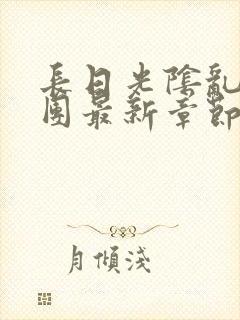 長日光陰亂
團最新章節
月傾淺